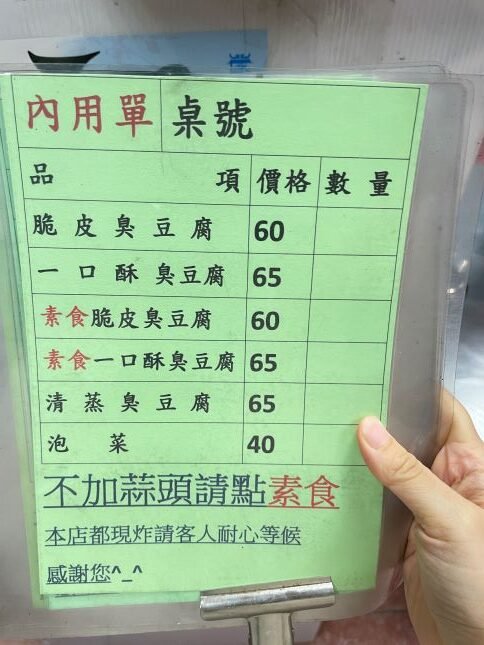 內用單 桌號
品項 價格 數量
脆皮臭豆腐 60
一口酥臭豆腐 65
素食脆皮臭豆腐 60
素食一口酥臭豆腐 65
清蒸臭豆腐 65
泡菜 40
不加蒜頭請點素食
本店都現炸請客人耐心等候
感謝您^_^